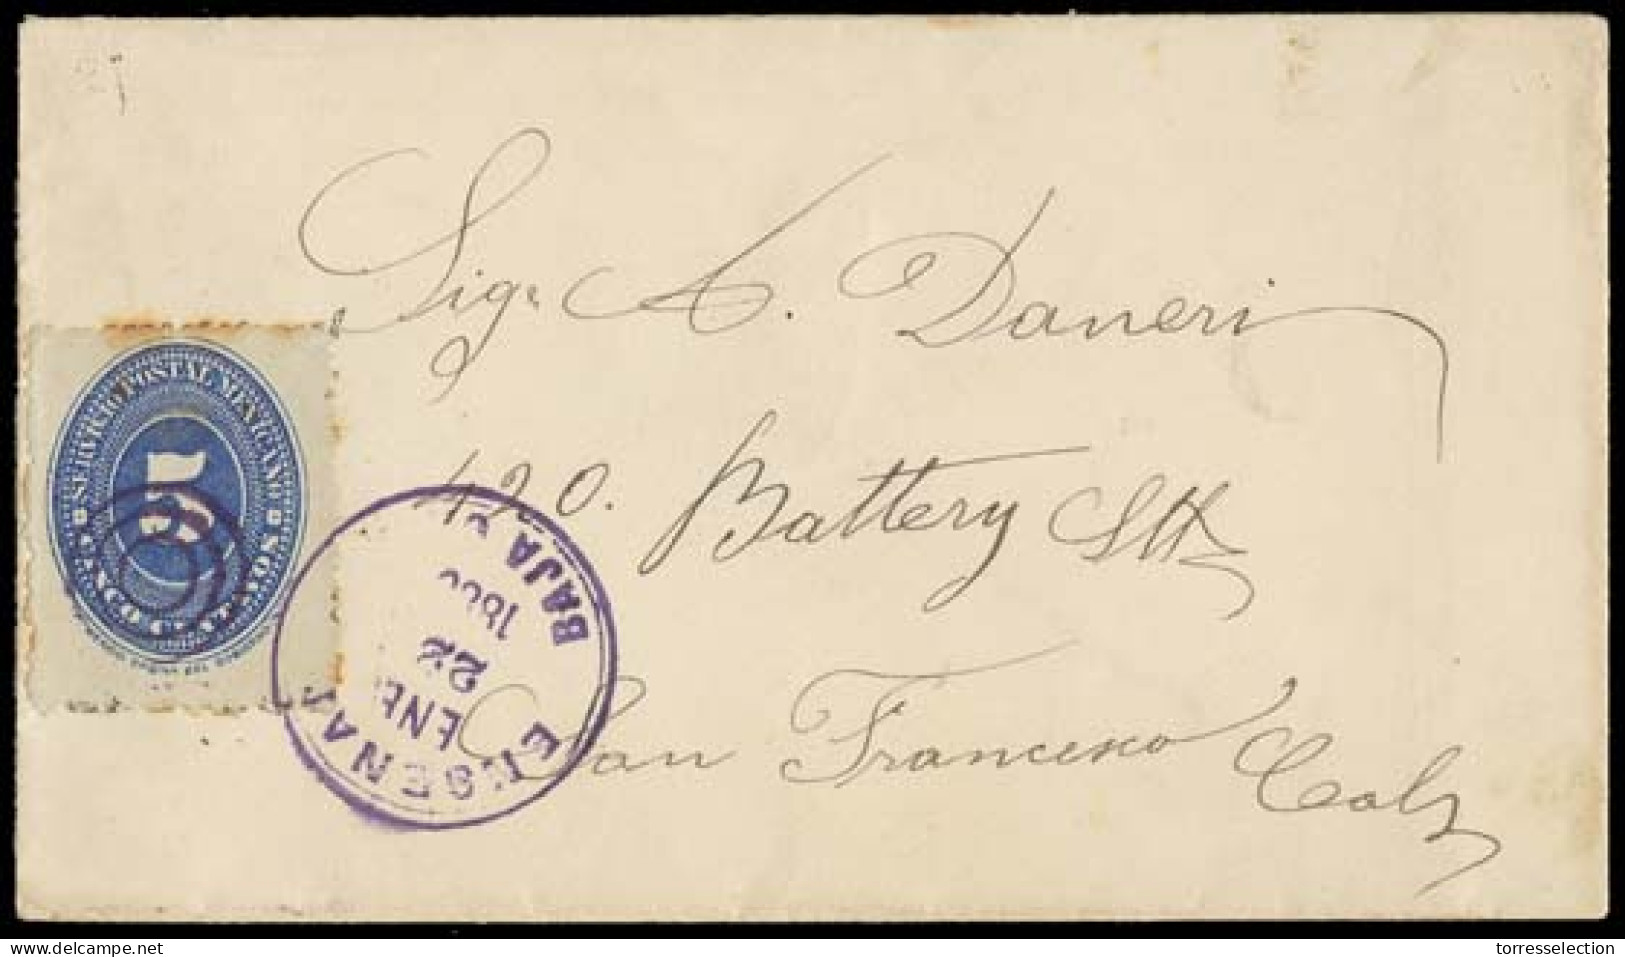 Sig. A. Daneri
SERVICIO POSTAL MEXICANO
5
CINCO CENTAVOS
420. Battery Stt
ENSENADA
BAJA
ENE
22
San Francisco Cal
www.delcampe.net
torresselection